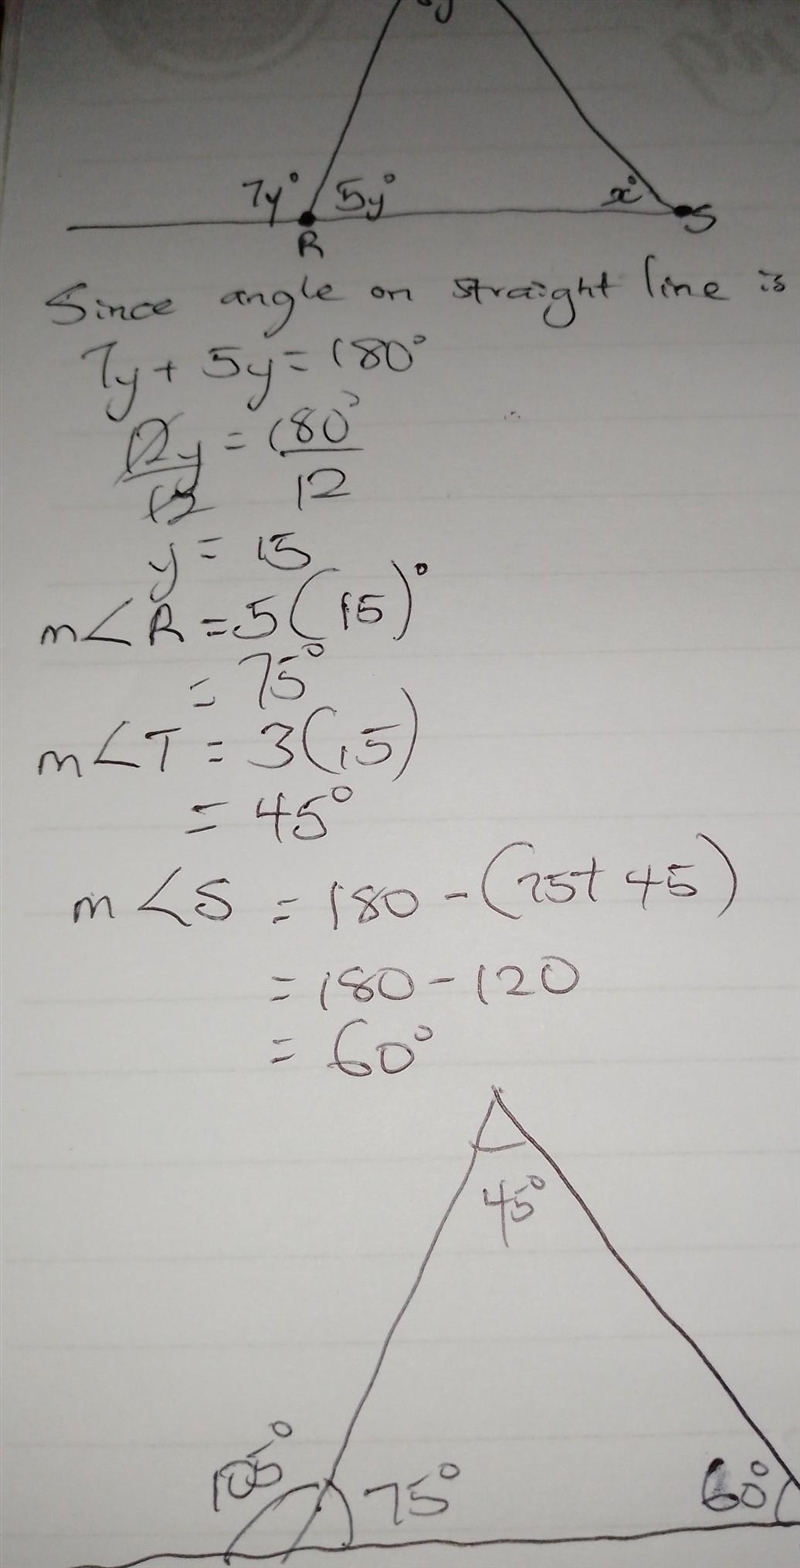 y
7y° 5y° x°
R S
Since angle on straight line is
7y + 5y = 180°
12y = 180°
12 12
y = 15
m∠R = 5(15)°
= 75°
m∠T = 3(15)
= 45°
m∠S = 180 - (75 + 45)
= 180 - 120
= 60°
45°
105° 75° 60°